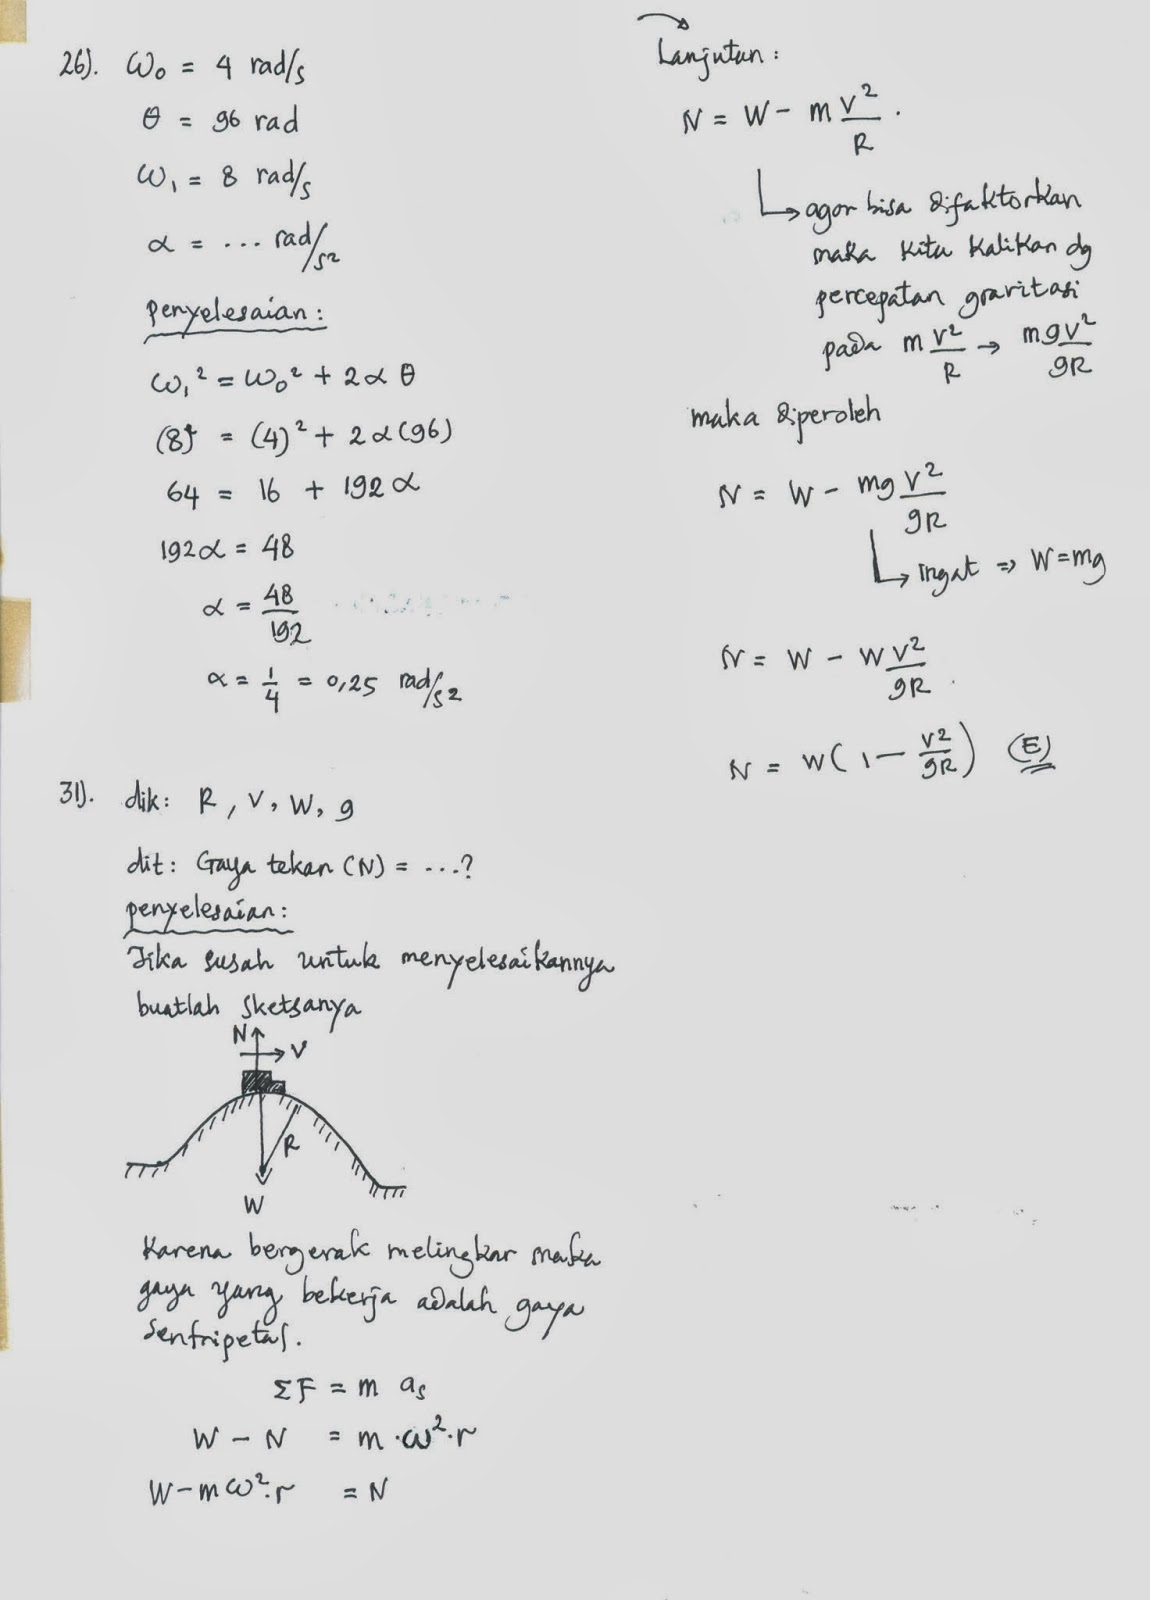 26). ω₀ = 4 rad/s
θ = 96 rad
ω₁ = 8 rad/s
α = ... rad/s²
penyelesaian :
ω₁² = ω₀² + 2αθ
(8)² = (4)² + 2α(96)
64 = 16 + 192α
192α = 48
α = 48/192
α = 1/4 = 0,25 rad/s²
31). dik: R, V, W, g
dit: Gaya tekan (N) = ...?
penyelesaian:
Jika susah untuk menyelesaikannya
buatlah sketsanya
N
V
R
W
Karena bergerak melingkar maka
gaya yang bekerja adalah gaya
sentripetal.
ΣF = m as
W - N = m · ω² · r
W - m ω² · r = N
Lanjutan :
N = W - m V²/R .
agar bisa difaktorkan
maka kita kalikan dg
percepatan gravitasi
pada m V²/R → mgV²/gR
maka diperoleh
N = W - mg V²/gR
ingat => W = mg
N = W - W V²/gR .
N = W(1 - V²/gR) (E)